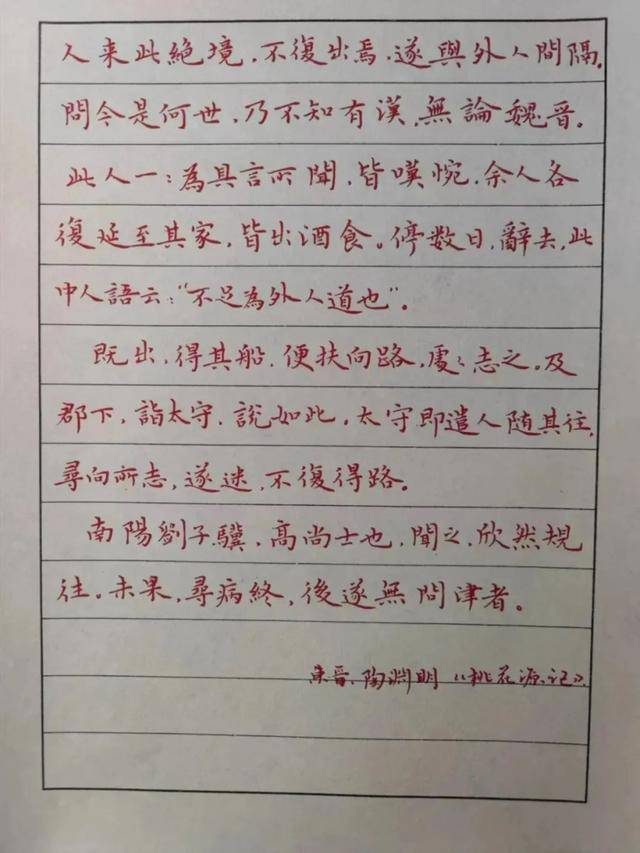 人来此絶境，不復出焉，遂與外人間隔。
問今是何世，乃不知有漢，無論魏晋。
此人一：為具言所聞，皆嘆惋，余人各
復延至其家，皆出酒食。停数日，辭去，此
中人語云："不足為外人道也"。
既出，得其船，便扶向路，處：志之。及
郡下，詣太守，說如此，太守即遣人随其往，
尋向所志，遂迷，不復得路。
南陽劉子驥，高尚士也，聞之，欣然規
往。未果，尋病終，後遂無問津者。
東晋．陶淵明《桃花源记》．